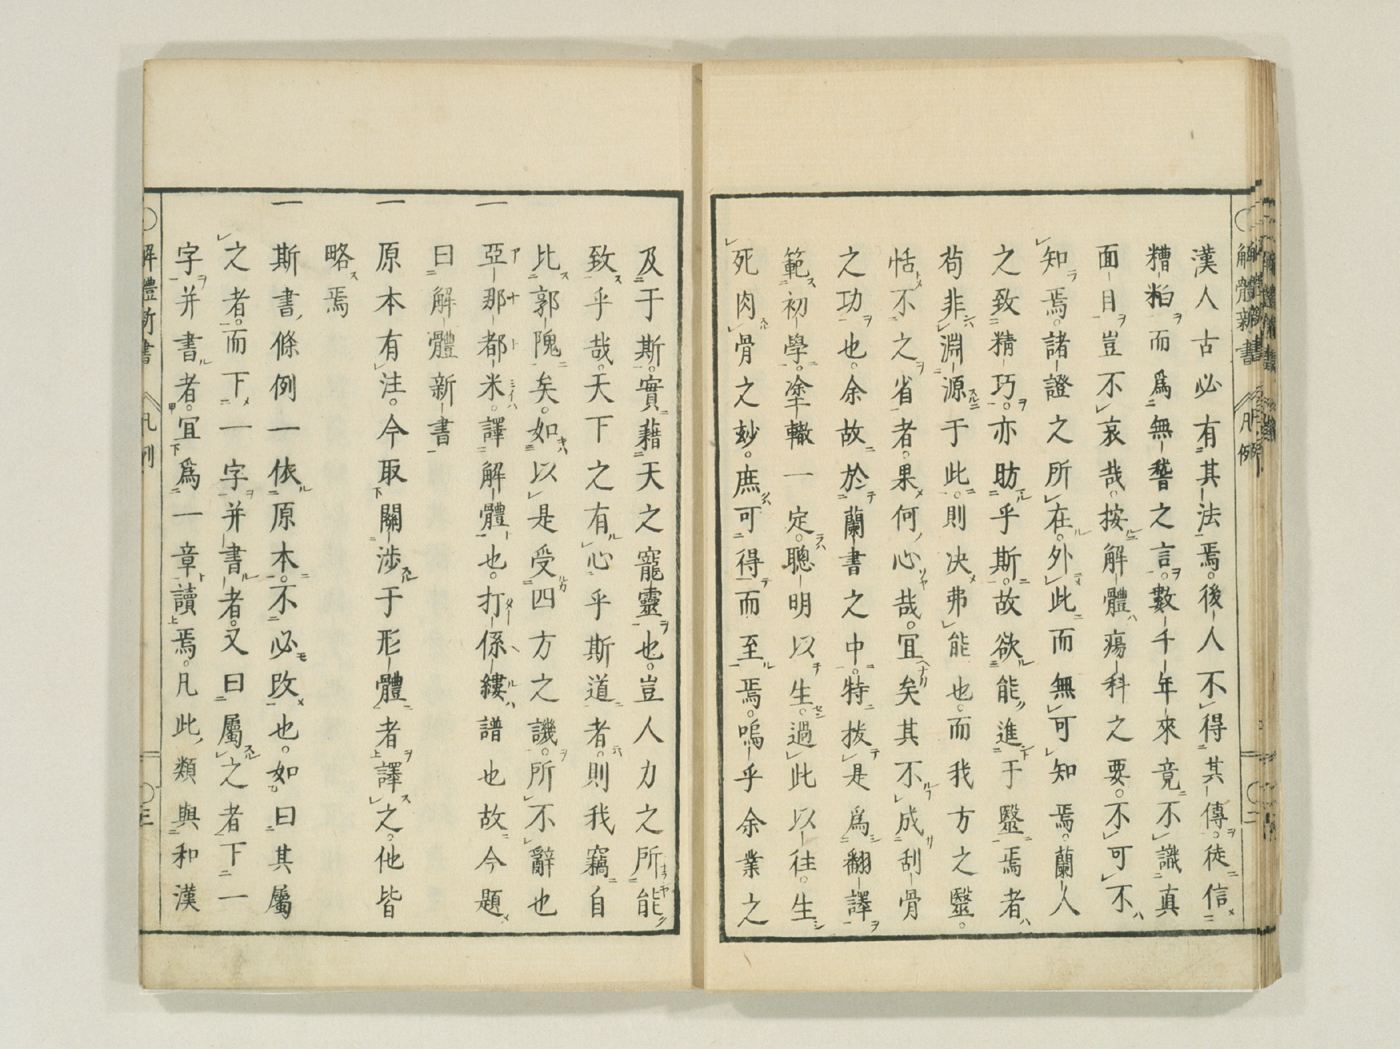 解體新書 凡例 二
漢人古必有其法焉。後人不得其傳。徒信
糟粕而爲無稽之言。數千年來竟不識真
面目豈不哀哉。按解體瘍科之要。不可不
知焉。諸證之所在。外此而無可知焉。蘭人
之致精巧。亦昉乎斯。故欲能進于毉焉者
苟非淵源于此。則决弗能也。而我方之毉。
恬不之省者。果何心哉。宜矣其不成刮骨
之功也。余故於蘭書之中。特拔是爲翻譯
範初學。塗轍一定。聰明以生。過此以往。生
死肉骨之玅。庶可得而至焉。嗚乎余業之
及于斯。實藉天之寵靈也。豈人力之所能
致乎哉。天下之有心乎斯道者。則我竊自
比郭隗矣。如以是受四方之譏。所不辭也
一亞那都米。譯解體也。打係縷譜也故今題
曰解體新書
一原本有注。今取關渉于形體者譯之。他皆
略焉
一斯書條例一依原本。不必改也。如曰其屬
之者。而下一字并書者。又曰屬之者下一
字并書者。宜爲一章讀焉。凡此類與和漢
解體新書 凡例 三